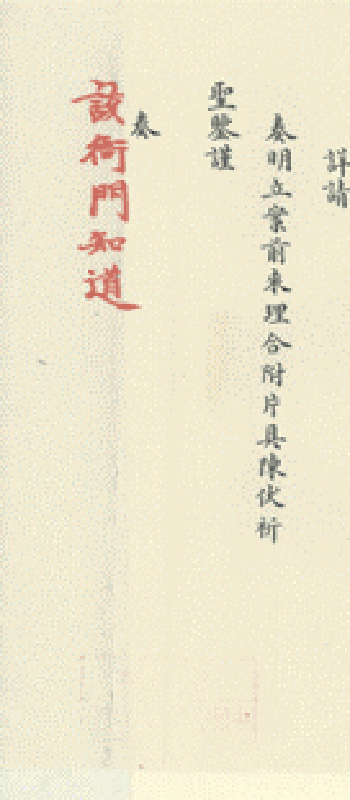 詳請
奏明立案前來理合附片具陳伏祈
聖鑒謹
奏
該衙門知道